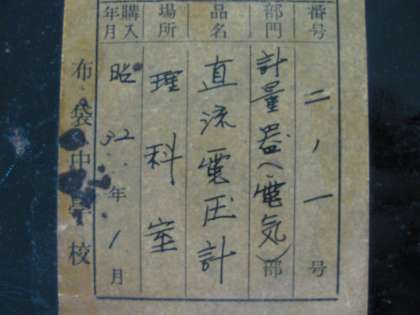 番号 二ノ一号
部門 計量器(電気)部
品名 直流電圧計
場所 理科室
購入年月 昭32年1月
布袋中学校